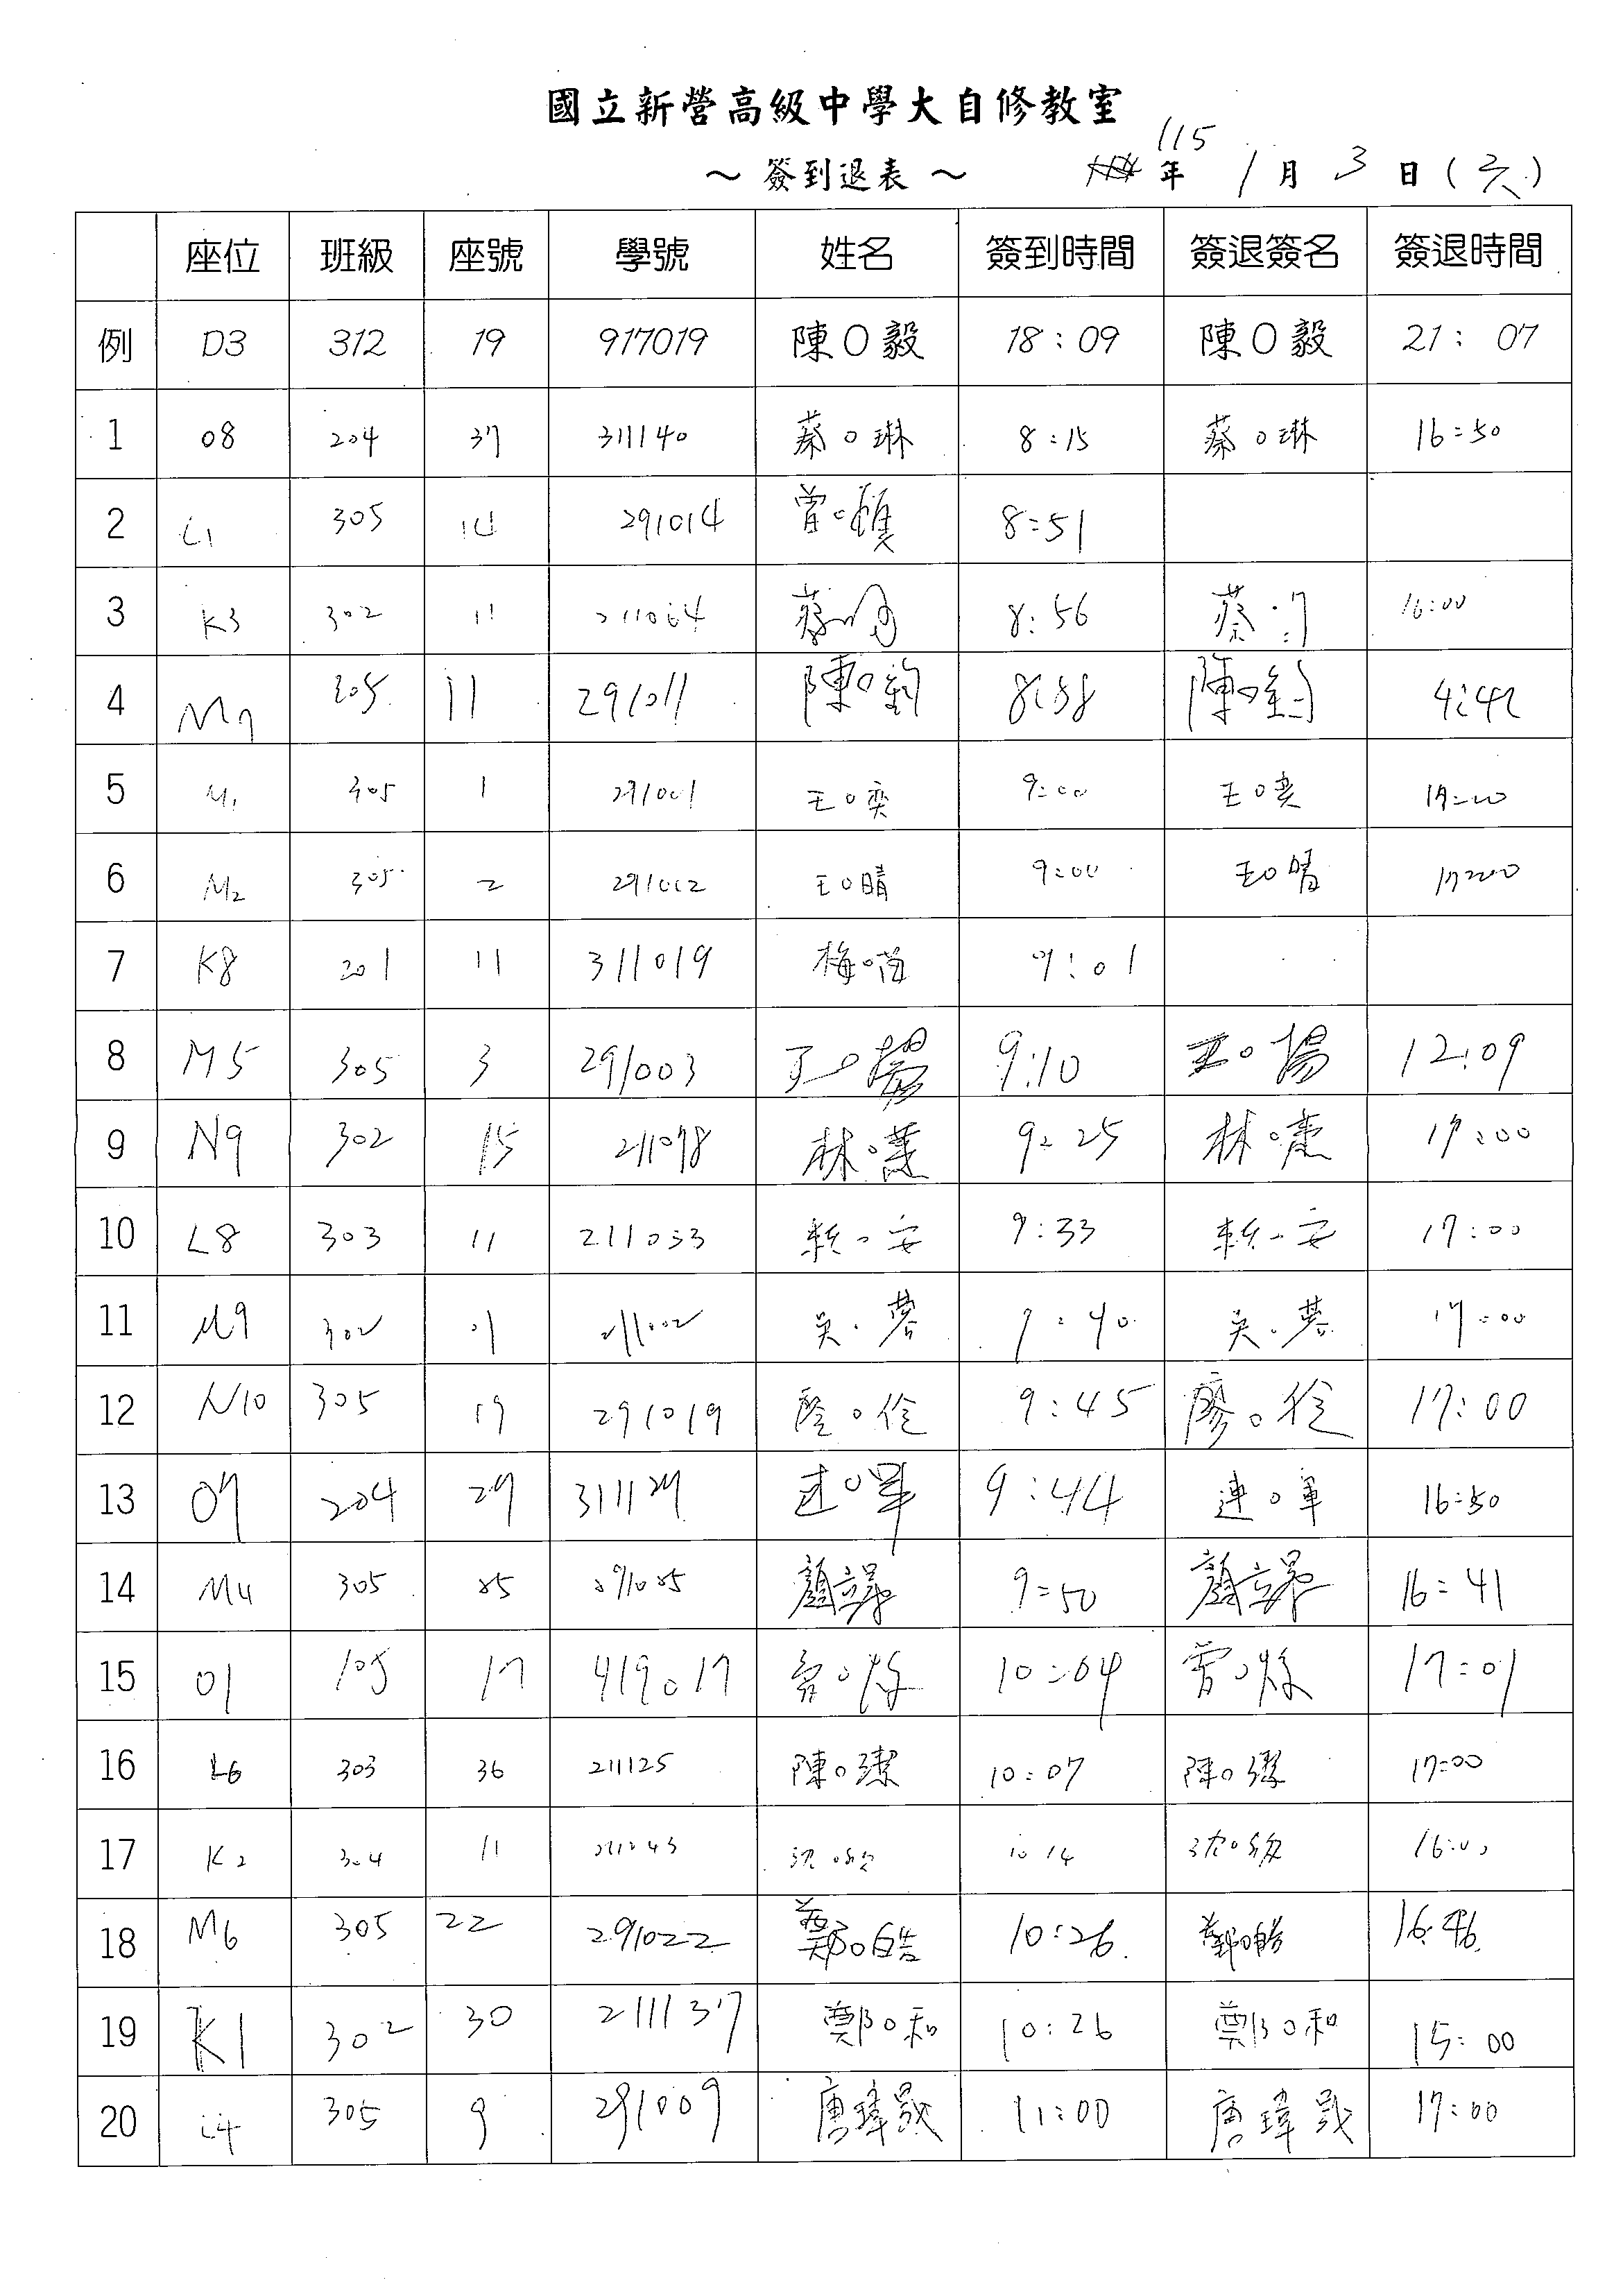 國立新營高級中學大自修教室
～ 簽到退表 ～ 115 年 1 月 3 日 (六)
座位 班級 座號 學號 姓名 簽到時間 簽退簽名 簽退時間
例 D3 312 19 917019 陳O毅 18:09 陳O毅 21:07
1 08 204 37 311140 蔡O琳 8:15 蔡O琳 16:50
2 L1 305 14 291014 曾O 8:51
3 K3 302 11 211064 蔡 8:56 蔡 16:00
4 M7 305 11 291011 陳O鈞 8:58 陳O鈞 4:42
5 M1 305 1 291001 王O奕 9:00 王O奕 17:00
6 M2 305 2 291002 王O晴 9:00 王O晴 17:00
7 K8 201 11 311019 梅 9:01
8 M5 305 3 291003 王O揚 9:10 王O揚 12:09
9 N9 302 15 211078 林 9:25 林 17:00
10 L8 303 11 211033 賴O安 9:33 賴O安 17:00
11 M9 302 01 211002 吳O蓉 9:40 吳O蓉 17:00
12 N10 305 19 291019 廖O佺 9:45 廖O佺 17:00
13 07 204 29 311127 連O軍 9:44 連O軍 16:50
14 M4 305 25 291025 顏 9:50 顏 16:41
15 01 105 17 419017 10:04 17:01
16 L6 303 36 211125 陳O潔 10:07 陳O潔 17:00
17 K2 304 11 211043 沈 10:14 沈 16:00
18 M6 305 22 291022 鄭O皓 10:26 鄭O皓 16:46
19 K1 302 30 211137 鄭O和 10:26 鄭O和 15:00
20 L4 305 9 291009 唐瑋晟 11:00 唐瑋晟 17:00